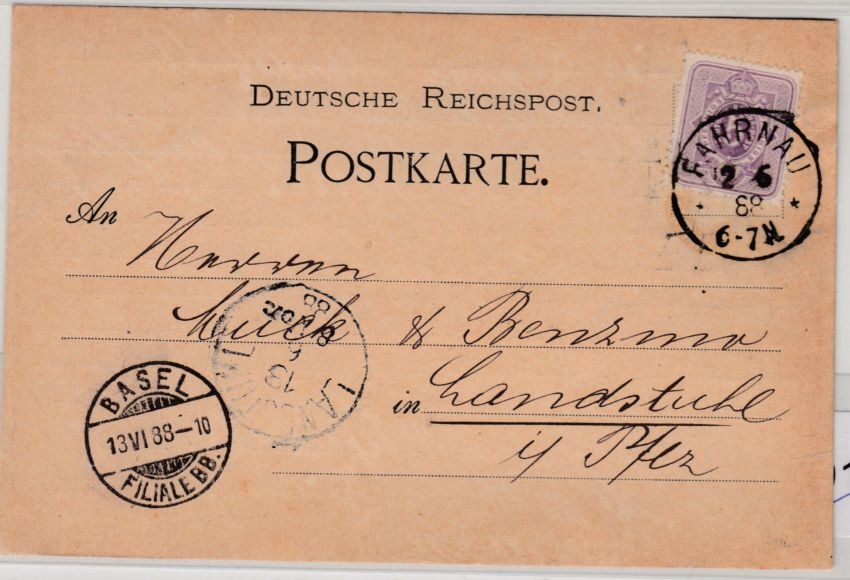 DEUTSCHE REICHSPOST.
POSTKARTE.
FAHRNAU
12 6
88
6-7N
An
Herren
Muck & Benzino
in Landstuhl
i/ Pfaz
LANDSTUHL
13
6
88
BASEL
13 VI 88-10
FILIALE BB.